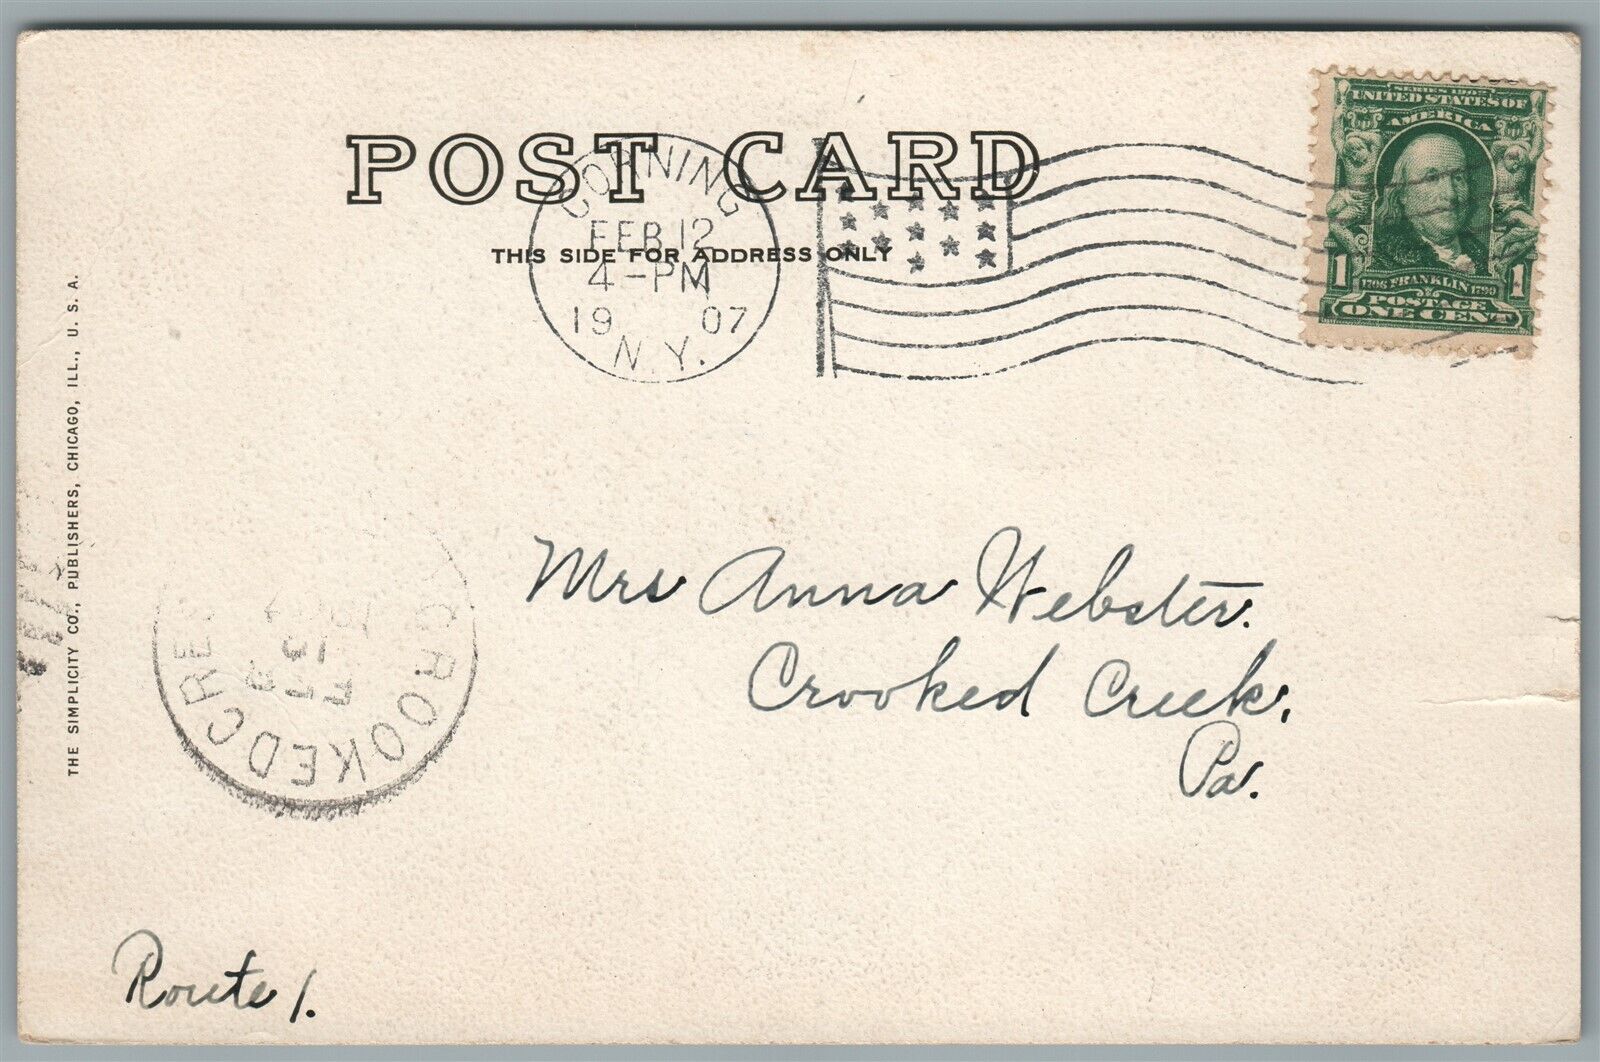 POST CARD
THIS SIDE FOR ADDRESS ONLY
CORNING
FEB 12
4-PM
19 07
N.Y.
SERIES 1902
UNITED STATES OF
AMERICA
1706 FRANKLIN 1790
POSTAGE
1 1
ONE CENT
THE SIMPLICITY CO., PUBLISHERS, CHICAGO, ILL., U. S. A.
Mrs Anna Webster.
Crooked Creek,
Pa.
CROOKED CREE
Route 1.